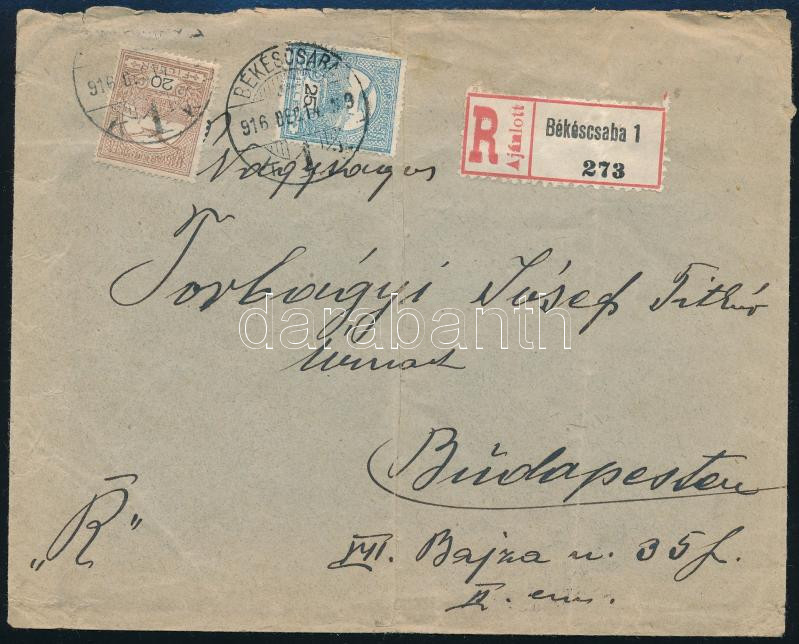 916 DEC
20
FILLÉR
BÉKÉSCSABA
916 DEC 14
25
R
Ajánlott
Békéscsaba 1
273
Nagyságos
Torbágyi József Titkár
úrnak
Budapesten
"R"
VII. Bajza u. 35 f.
II. em.
darabanth